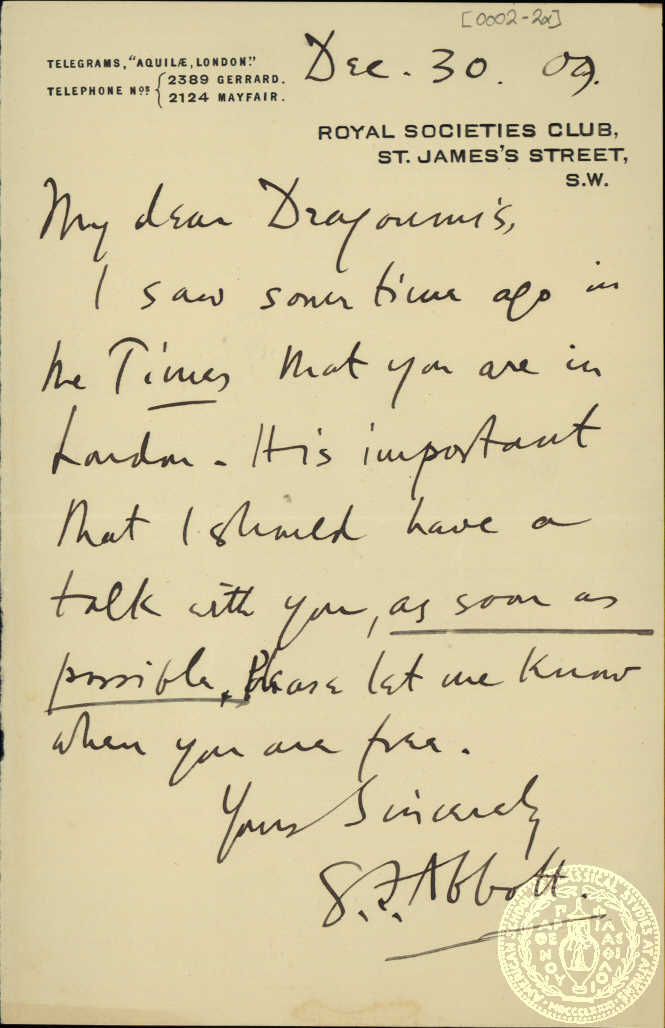 [0002-2a]
TELEGRAMS, "AQUILÆ, LONDON."
TELEPHONE Nos { 2389 GERRARD.
2124 MAYFAIR.
Dec. 30. 09.
ROYAL SOCIETIES CLUB,
ST. JAMES'S STREET,
S.W.
My dear Dragoumis,
I saw some time ago in
the Times that you are in
London. It is important
that I should have a
talk with you, as soon as
possible. Please let me know
when you are free.
Yours Sincerely
G.F. Abbott.